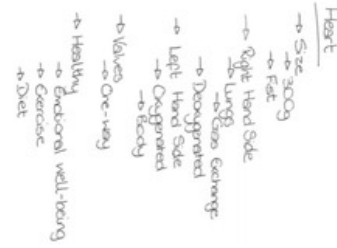 Heart
→ Size
→ 300g
→ Fist
→ Right Hand Side
→ Lungs
→ Gas Exchange
→ Deoxygenated
→ Left Hand Side
→ Oxygenated
→ Body
→ Valves
→ One-way
→ Healthy
→ Emotional well-being
→ Exercise
→ Diet